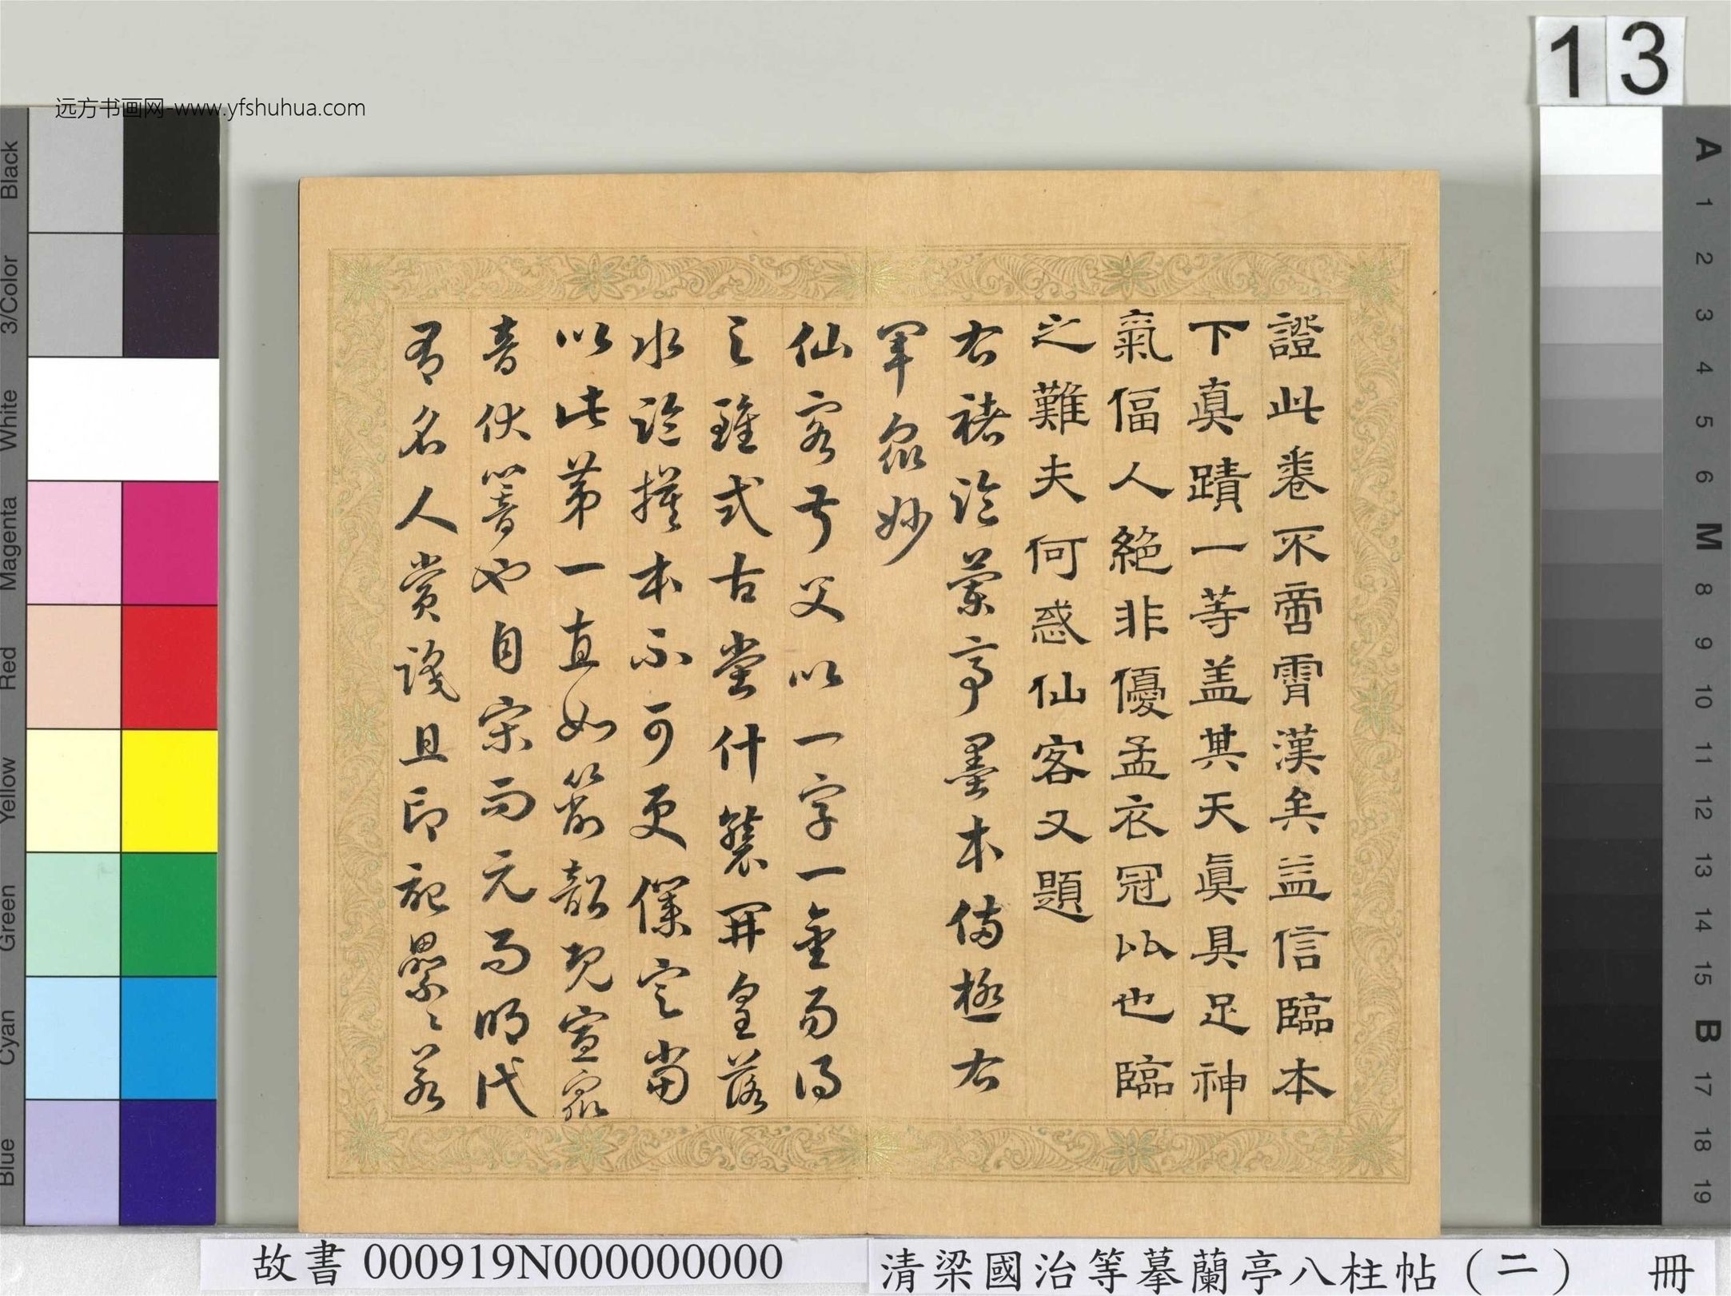 證此卷不啻霄漢矣益信臨本
下真蹟一等盖其天真具足神
氣偪人絕非優孟衣冠比也臨
之難夫何惑仙客又題
右褚臨蘭亭墨本備極右
軍眾妙
仙客父以一字一金易得
之雖式古堂什襲開皇落
水臨摸本不可更僕定當
以此第一直如簫韶既宣眾
音伏響也自宋而元而明代
有名人賞識且印記纍々若
远方书画网-www.yfshuhua.com
13
Black
3/Color
White
Magenta
Red
Yellow
Green
Cyan
Blue
A
1
2
3
4
5
6
M
8
9
10
11
12
13
14
15
B
17
18
19
故書 000919N000000000
清梁國治等摹蘭亭八柱帖（二） 冊